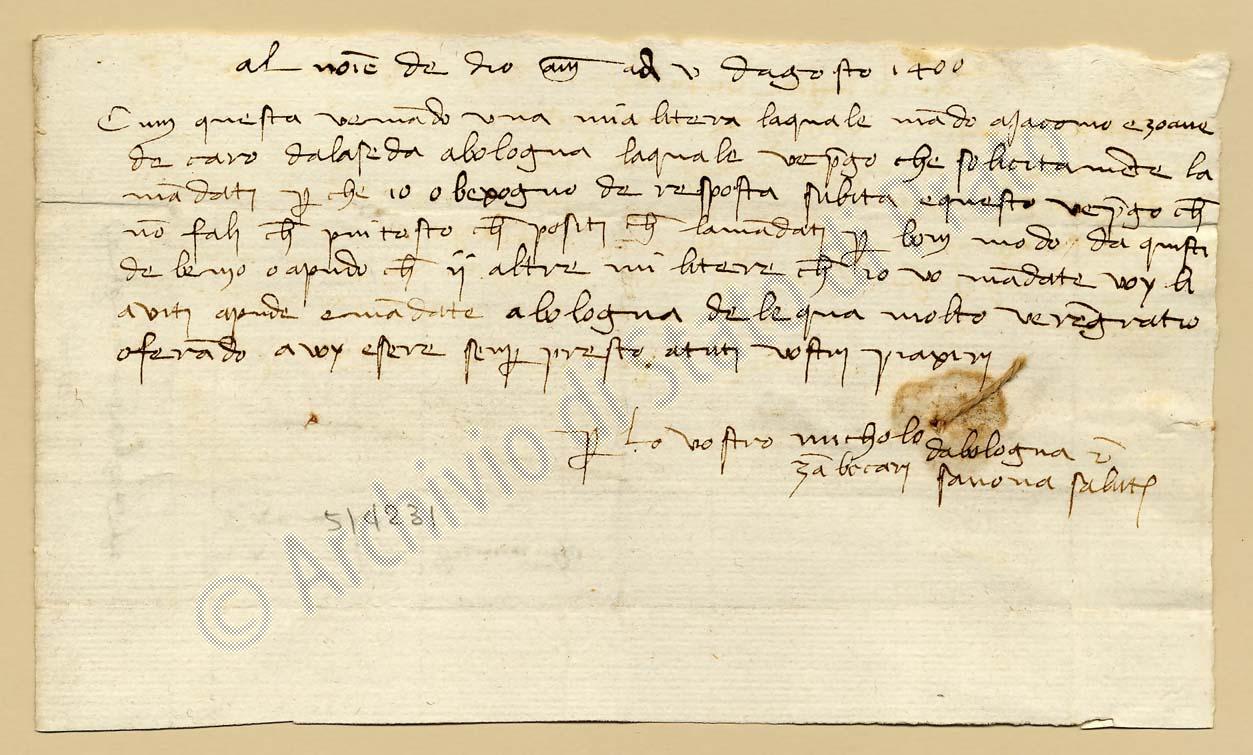 al nome de dio am adi v dagosto 1400
Cum questa ve mando una mia litera laquale mando a Jacomo e zoane
de caro dalaseda abologna laquale ve prego che solicitamente la
mandati per che io o bexogno de resposta subita e questo ve prego che
non fali che piu tosto che positi che la mandati per bom modo da quisti
de o apudo che ii altre mi litere che io vo mandate voy li
aviti apude e mandate abologna dele qua molto ve rengratio
oferando a voy esere semper presto a tuti vostri piaxiri
per lo vostro nicholo dabologna
zanbecari savona salut
514231
© Archivio di Stato di Prato